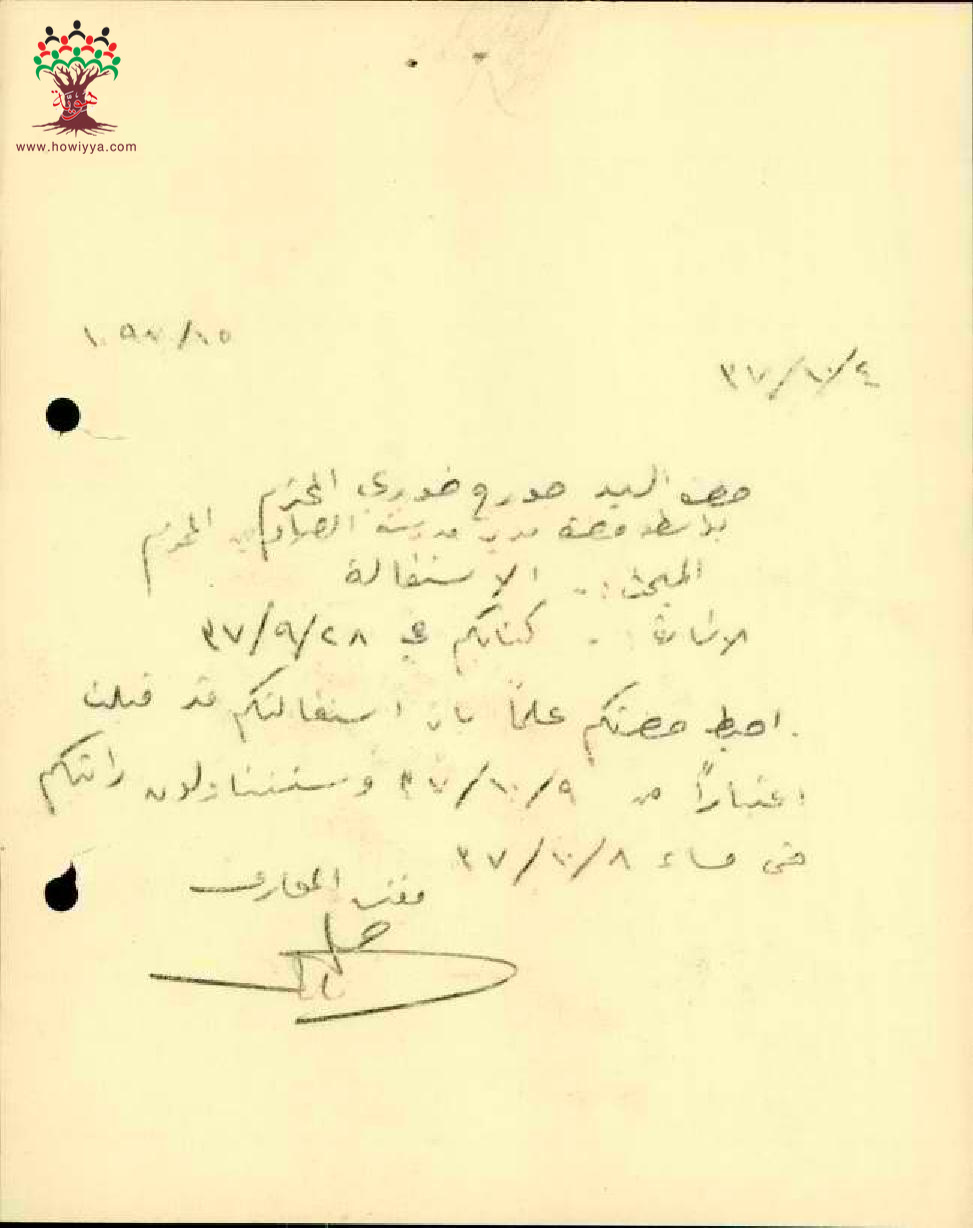 هوية
www.howiyya.com
١٠٩٧/١٥
٣٧/١٠/٤
حضرة السيد جورج خوري المحترم
بواسطة حضرة مدير مدرسة المحترم
المبحث :- الاستقالة
الاشارة :- كتابكم في ٣٧/٩/٢٨
احيط حضرتكم علماً بان استقالتكم قد قبلت
اعتباراً من ٣٧/١٠/٩ وستتناولون راتبكم
حتى مساء ٣٧/١٠/٨
مفتش المعارف